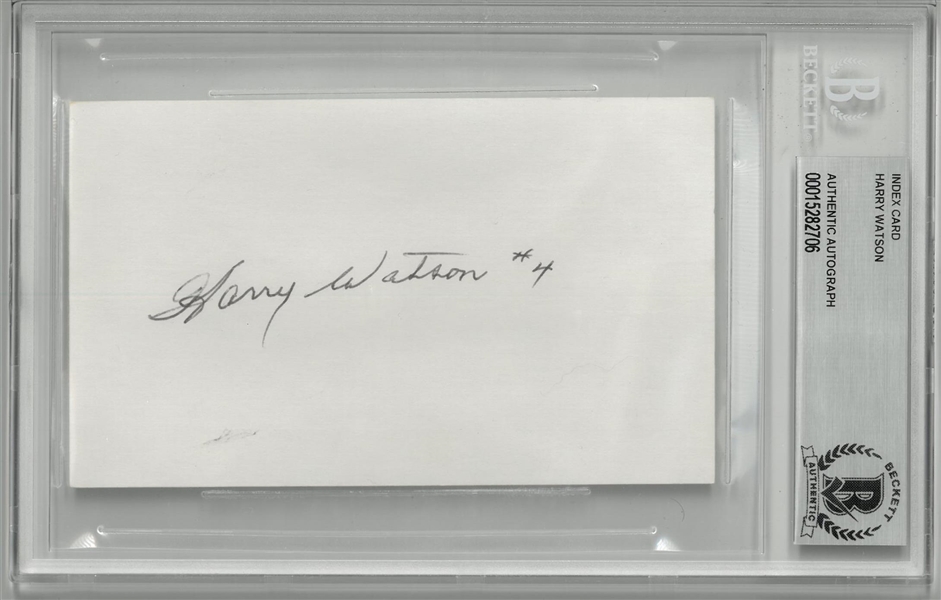 Harry Watson #4
B
BECKETT
INDEX CARD
HARRY WATSON
AUTHENTIC AUTOGRAPH
00015282706
BECKETT
AUTHENTIC
B